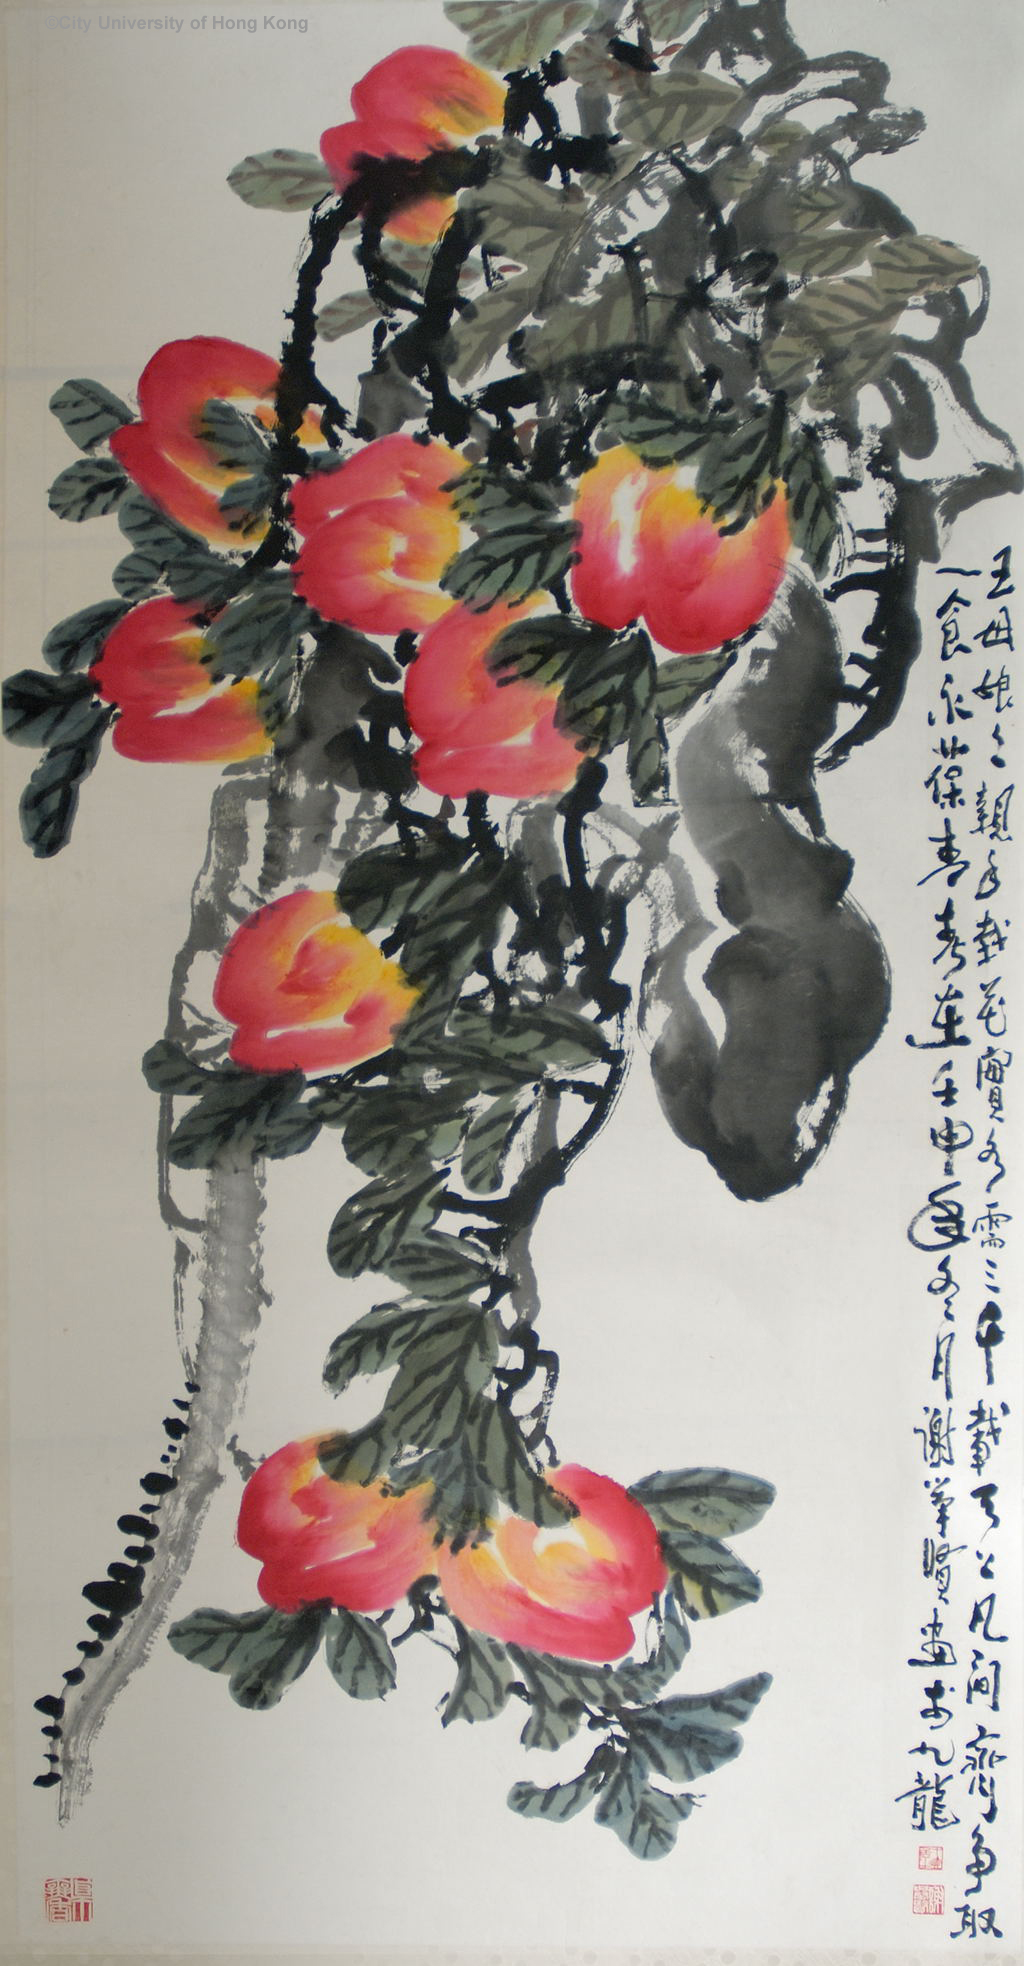 ©City University of Hong Kong
王母娘々親手栽花實各需三千載天上凡間齊爭取
一食永葆青春在壬申年冬月謝賢畫於九龍